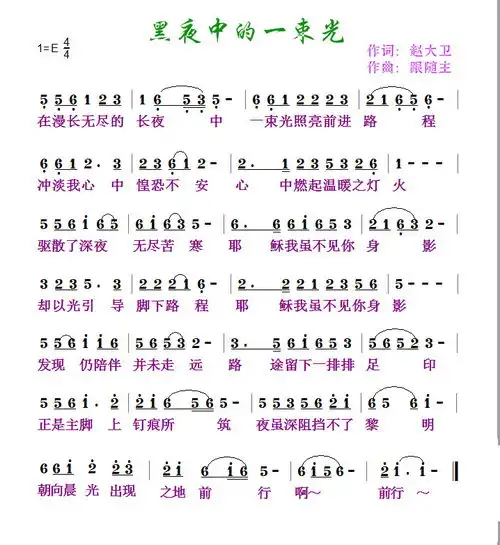 黑夜中的一束光
1=E 4/4
作词：赵大卫
作曲：跟随主
5 5 6 1 2 3 | 1 6 · 5 3 | 6 6 1 2 2 3 | 2 1 6 5 | 5 - |
在漫长无尽的 长夜 中 一束光照亮前进 路 程
6 6 1 2 · 3 | 2 3 6 1 2 - | 2 · 1 2 3 5 3 2 6 | 1 - - - |
冲淡我心中 惶恐不 安 心 中燃起温暖之灯 火
5 5 6 i 6 5 | 5 6 5 3 - | 6 · 6 5 6 i 6 5 3 | 2 1 6 3 - |
驱散了深夜 无尽苦 寒 耶 稣我虽不见你 身 影
3 2 3 5 · 3 | 2 2 2 1 6 - | 2 · 3 5 5 6 5 3 2 | 1 - - - |
却以光引 导 脚下路 程 耶 稣我虽不见你身 影
5 6 · i i 6 | 5 6 5 3 2 - | 3 · 5 6 i 5 6 5 3 | 5 6 5 - |
发现 仍陪伴 并未走 远 路 途留下一排排 足 印
6 5 6 i · 2 | 2 i 6 5 6 - | 6 5 6 i i 6 5 3 | 5 6 6 - |
正是主脚 上 钉痕所 筑 夜虽深阻挡不了 黎 明
6 6 i 2 2 3 | 2 i 6 i 6 | 5 - 6 - | 2 i · i - ‖
朝向晨 光 出现 之地 前 行 啊～ 前行 ～